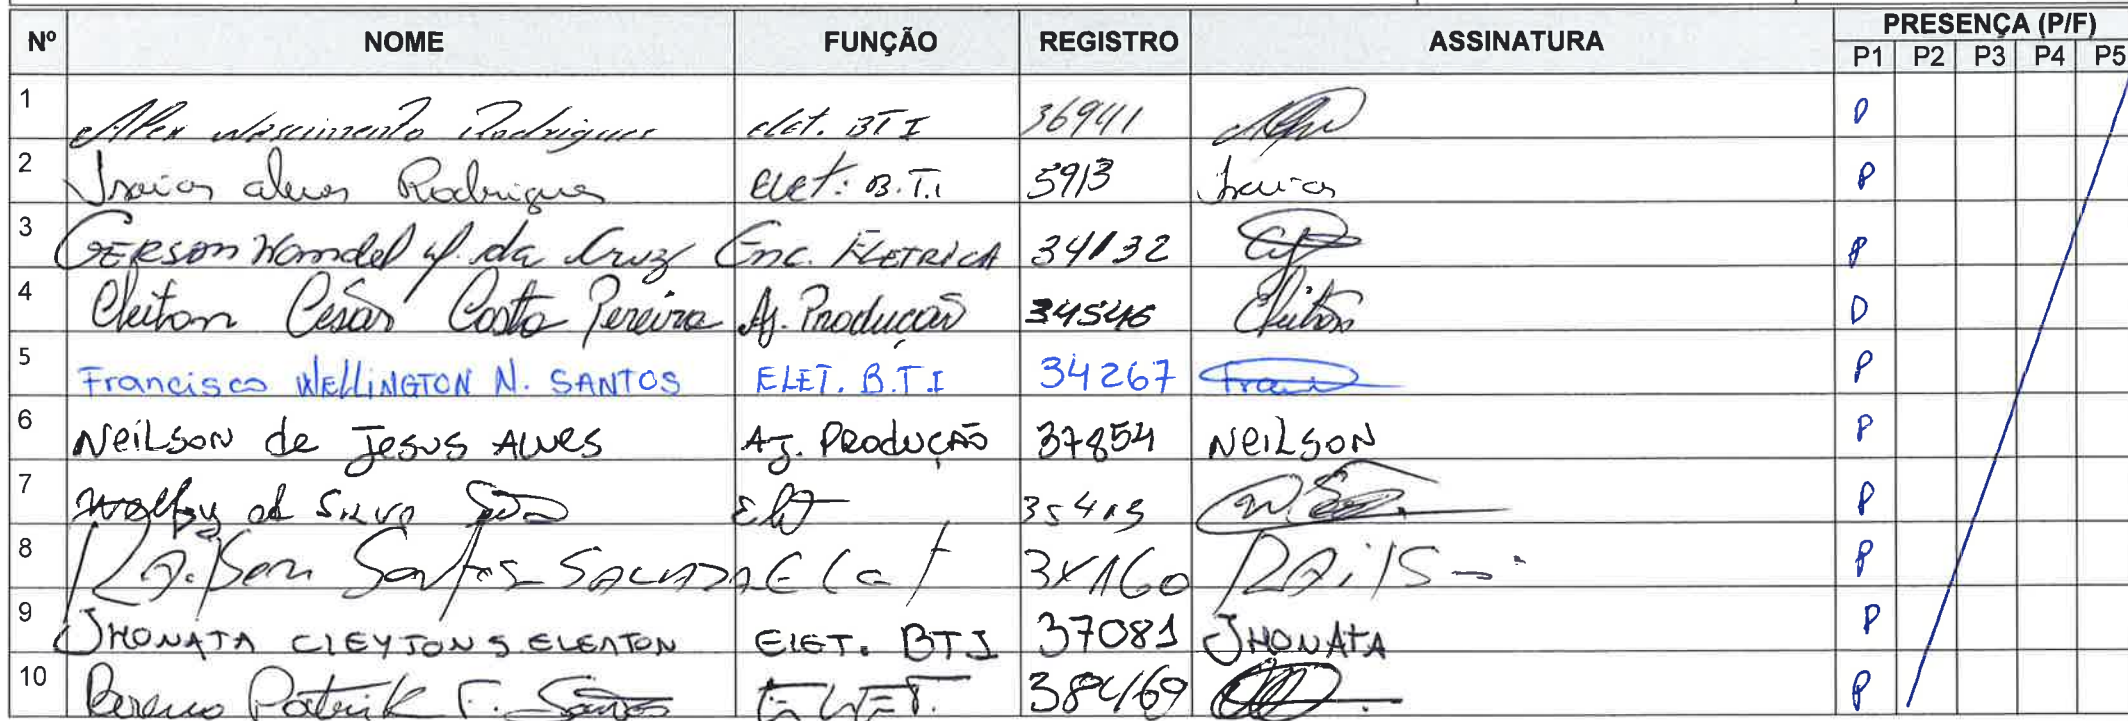 Nº NOME FUNÇÃO REGISTRO ASSINATURA PRESENÇA (P/F)
P1 P2 P3 P4 P5
1 Alex Nascimento Rodrigues elet. BTI 36941 P
2 Isaias alves Rodrigues elet. B.T.I 5913 Isaias P
3 GERSON Wandel da Cruz Enc. ELETRICA 34132 P
4 Cleiton César Costa Pereira Aj. Produção 34546 Cleiton P
5 Francisco WELLINGTON N. SANTOS ELET. B.T.I 34267 Fran P
6 NeiLSON de JESUS ALVES AJ. PRODUÇÃO 37854 NeiLSON P
7 P
8 Santos P
9 JHONATA CLEYTON S. ELET. BTI 37081 JHONATA P
10 Patrik F. Santos ELET. P